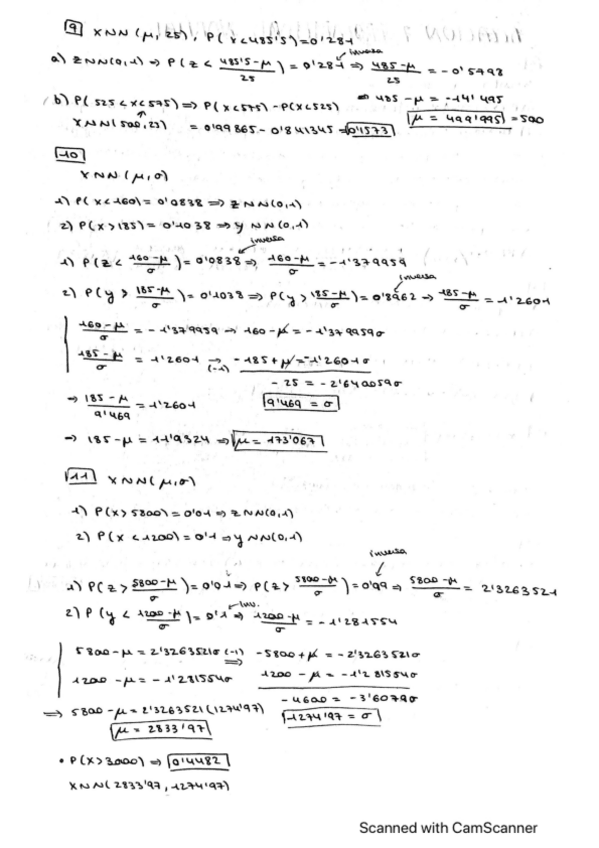 9 X N N (μ, 25), P(X<485'5)=0'281
inversa
a) Z N N(0,1) ⇒ P(Z < 485'5-μ/25) = 0'281 ⇒ 485-μ/25 = -0'5798
⇒ 485-μ = -14'495
b) P(525<X<575) ⇒ P(X<575) - P(X<525)
μ = 499'995 = 500
X N N(500,25) = 0'99865 - 0'841345 = 0'1573
10
X N N (μ, σ)
1) P(X<160) = 0'0838 ⇒ Z N N(0,1)
2) P(X>185) = 0'1038 ⇒ Y N N(0,1)
inversa
1) P(Z < 160-μ/σ) = 0'0838 ⇒ 160-μ/σ = -1'379959
inversa
2) P(Y > 185-μ/σ) = 0'1038 ⇒ P(Y > 185-μ/σ) = 0'8962 → 185-μ/σ = 1'2601
160-μ/σ = -1'379959 → 160-μ = -1'379959σ
185-μ/σ = 1'2601 →(-1) -185+μ = -1'2601σ
-25 = -2'640059σ
⇒ 185-μ/9'469 = 1'2601 9'469 = σ
⇒ 185-μ = 11'9324 ⇒ μ = 173'067
11 X N N(μ,σ)
1) P(X>5800) = 0'01 ⇒ Z N N(0,1)
2) P(X<1200) = 0'1 ⇒ Y N N(0,1)
inversa
1) P(Z > 5800-μ/σ) = 0'01 ⇒ P(Z > 5800-μ/σ) = 0'99 ⇒ 5800-μ/σ = 2'3263521
inv.
2) P(Y < 1200-μ/σ) = 0'1 ⇒ 1200-μ/σ = -1'281554
5800-μ = 2'3263521σ (-1) ⇒ -5800+μ = -2'326352σ
1200-μ = -1'281554σ 1200-μ = -1'281554σ
-4600 = -3'60790σ
⇒ 5800-μ = 2'3263521(1274'97) 1274'97 = σ
μ = 2833'97
• P(X>3000) ⇒ 0'4482
X N N(2833'97, 1274'97)
Scanned with CamScanner